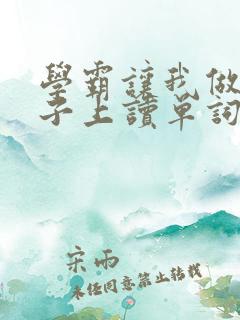 學霸讓我做
子上讀單詞
宋雨
未经同意禁止转载